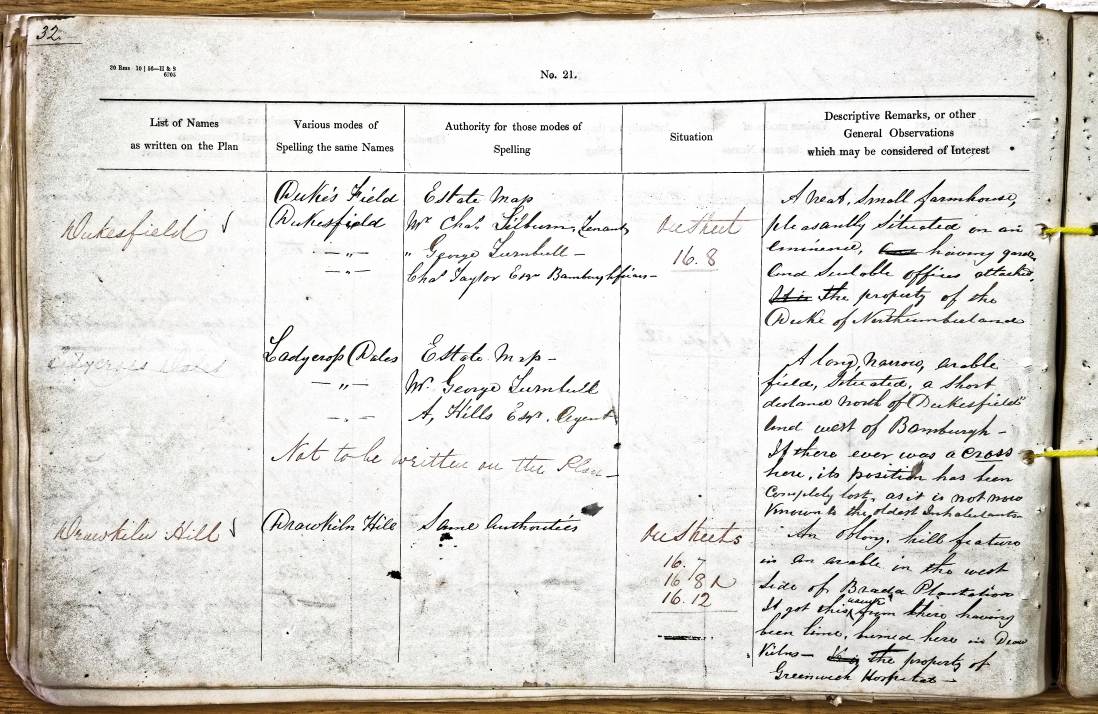 32.
20 Rms 10 | 56—H & S
6705
No. 21.
List of Names
as written on the Plan
Various modes of
Spelling the same Names
Authority for those modes of
Spelling
Situation
Descriptive Remarks, or other
General Observations
which may be considered of Interest
Dukesfield
Duke's Field
Dukesfield
— „ —
— „ —
Estate Map
Mr. Chas. Silburn, Tenant
" George Turnbull —
Chas Taylor Esqr Bamburgh Friars —
On Sheet
16. 8
A neat, small farmhouse,
pleasantly situated on an
eminence, having garden
and suitable offices attached.
It is the property of the
Duke of Northumberland
Ladycross Dales
Ladycross Dales
— „ —
— „ —
Estate Map —
Mr. George Turnbull
A, Hills Esqr. Agent
Not to be written on the Plan —
A long, narrow, arable
field, situated, a short
distance north of "Dukesfield"
and west of Bamburgh —
If there ever was a cross
here, its position has been
completely lost, as it is not now
known to the oldest Inhabitants
Drawkiln Hill
Drawkiln Hill
Same Authorities
On Sheets
16. 7
16 8
16. 12
An oblong, hill feature
in an arable in the west
side of Brada Plantation
It got this name from there having
been lime, burned here in Draw
Kilns — It is the property of
Greenwich Hospital —